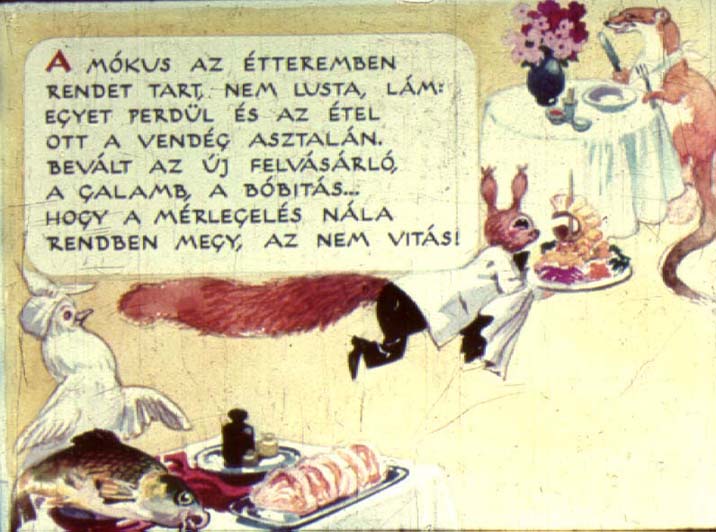 A MÓKUS AZ ÉTTEREMBEN
RENDET TART, NEM LUSTA, LÁM:
EGYET PERDÜL ÉS AZ ÉTEL
OTT A VENDÉG ASZTALÁN.
BEVÁLT AZ ÚJ FELVÁSÁRLÓ,
A GALAMB, A BÓBITÁS...
HOGY A MÉRLEGELÉS NÁLA
RENDBEN MEGY, AZ NEM VITÁS!